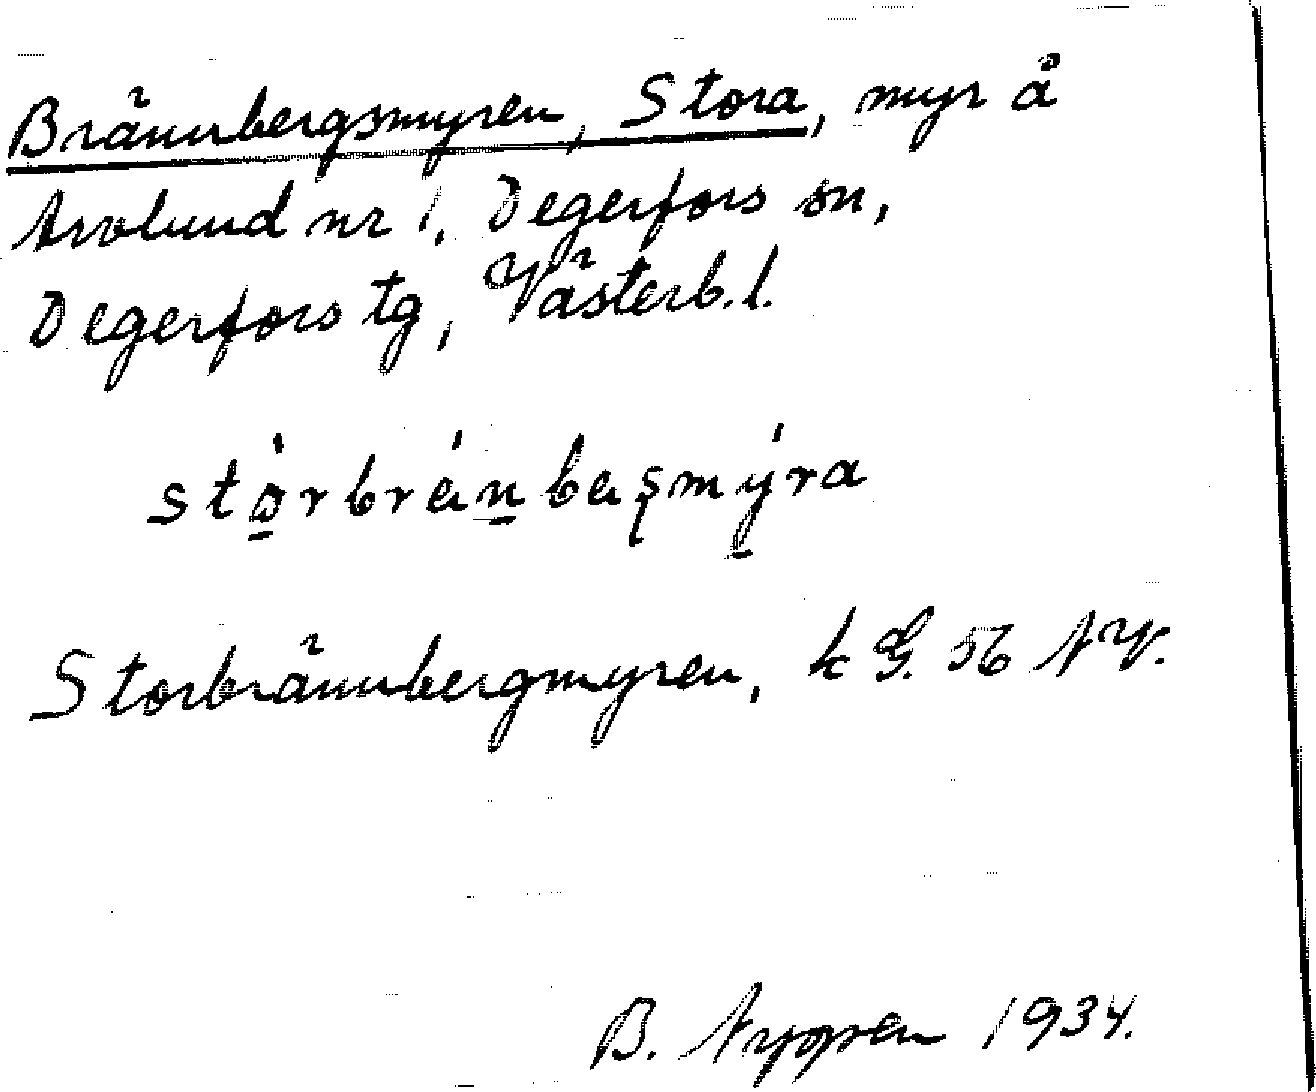 Brännbergsmyren, Stora, myr å
Arvlund nr 1, Degerfors sn,
Degerfors tg, Västerb.l.
stòrbránbaşmýra
Storbrännbergmyren, k G. 56 NV.
B. 1934.